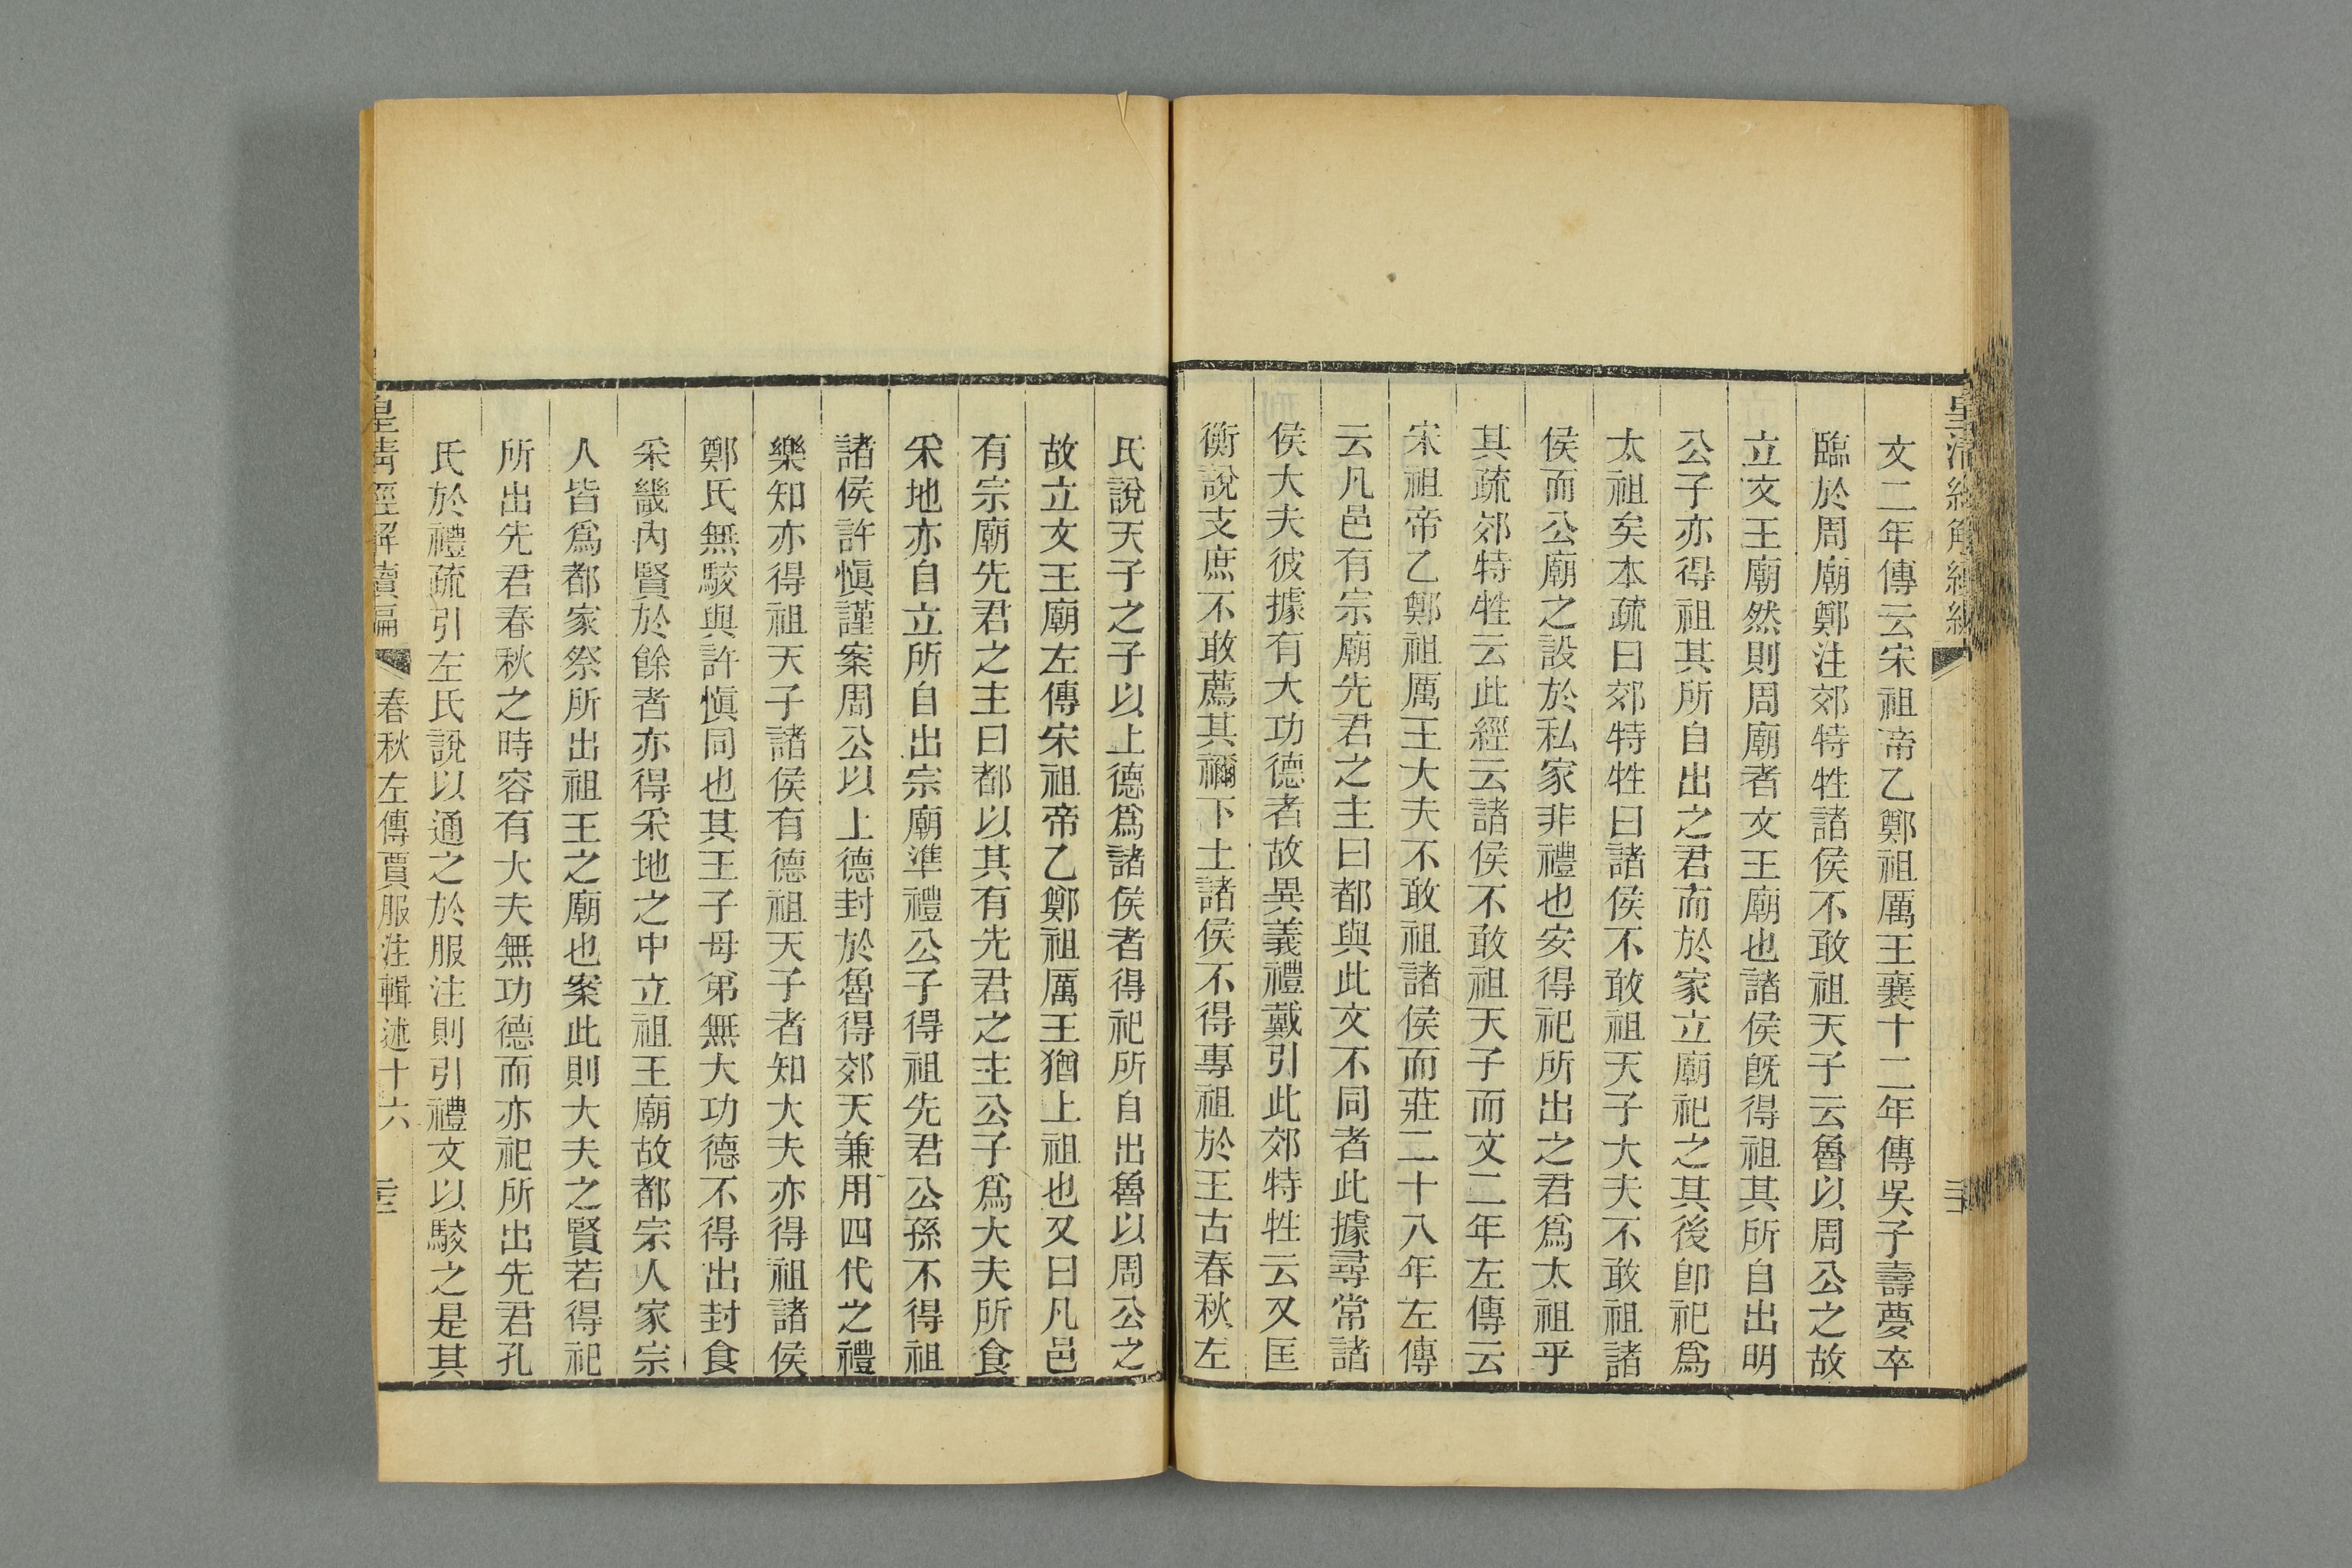 文二年傳云宋祖帝乙鄭祖厲王襄十二年傳吳子壽夢卒
臨於周廟鄭注郊特牲諸侯不敢祖天子云魯以周公之故
立文王廟然則周廟者文王廟也諸侯旣得祖其所自出明
公子亦得祖其所自出之君而於家立廟祀之其後卽祀爲
太祖矣本疏曰郊特牲曰諸侯不敢祖天子大夫不敢祖諸
侯而公廟之設於私家非禮也安得祀所出之君爲太祖乎
其疏郊特牲云此經云諸侯不敢祖天子而文二年左傳云
宋祖帝乙鄭祖厲王大夫不敢祖諸侯而莊二十八年左傳
云凡邑有宗廟先君之主曰都與此文不同者此據尋常諸
侯大夫彼據有大功德者故異義禮戴引此郊特牲云又匡
衡說支庶不敢薦其禰下士諸侯不得專祖於王古春秋左
氏說天子之子以上德爲諸侯者得祀所自出魯以周公之
故立文王廟左傳宋祖帝乙鄭祖厲王猶上祖也又曰凡邑
有宗廟先君之主曰都以其有先君之主公子爲大夫所食
采地亦自立所自出宗廟準禮公子得祖先君公孫不得祖
諸侯許愼謹案周公以上德封於魯得郊天兼用四代之禮
樂知亦得祖天子諸侯有德祖天子者知大夫亦得祖諸侯
鄭氏無駮與許愼同也其王子母弟無大功德不得出封食
采畿內賢於餘者亦得采地之中立祖王廟故都宗人家宗
人皆爲都家祭所出祖王之廟也案此則大夫之賢若得祀
所出先君春秋之時容有大夫無功德而亦祀所出先君孔
氏於禮疏引左氏說以通之於服注則引禮文以駮之是其
皇淸經解續編
春秋左傳賈服注輯述十六